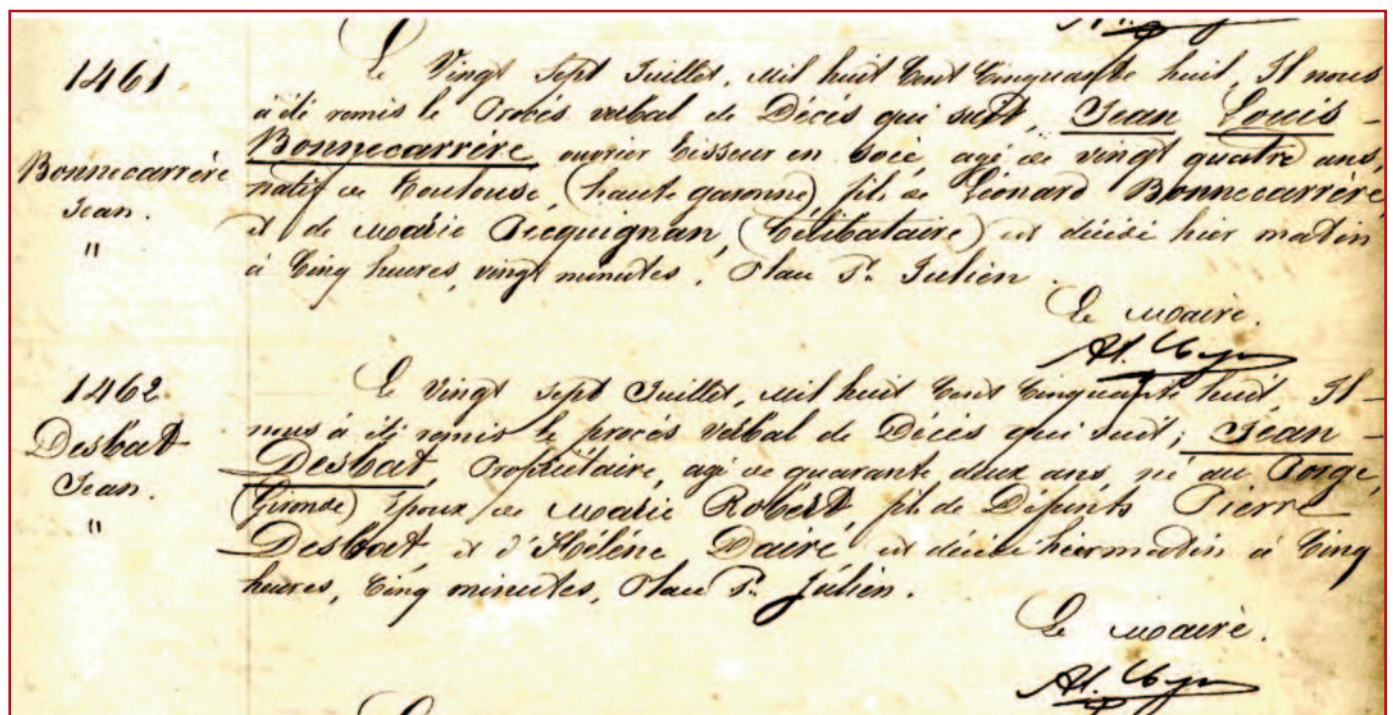 1461
Bonnecarrère
Jean.
"
Le Vingt Sept Juillet, mil huit Cent Cinquante huit, Il nous
à été remis le Procés verbal de Décés qui suit, Jean Louis -
Bonnecarrère, ouvrier tisseur en soie, agé de vingt quatre ans,
natif de Toulouse, (haute garonne) fils de Léonard Bonnecarrère,
et de Marie Pecquignan, (Célibataire) est décédé hier matin
à Cinq heures, vingt minutes, Place St. Julien.
Le Maire.
1462
Desbat
Jean.
"
Le Vingt Sept Juillet, mil huit Cent Cinquante huit, Il -
nous à été remis le procés verbal de Décés qui suit; Jean -
Desbat, Propriétaire, agé de quarante deux ans, né au Porge,
(Gironde) Epoux de Marie Robert, fils de Défunts Pierre
Desbat, et d'Hélène Dairé, est décédé hier matin à Cinq
heures, Cinq minutes, Place St. Julien.
Le Maire.